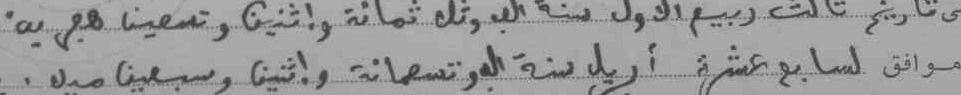 في تاريخ ثالث ربيع الاول سنة الف وثلاثمائة واثنين وتسعين هجرية
موافق لسابع عشرة أبريل سنة الف وتسعمائة واثنين وسبعين ميلا